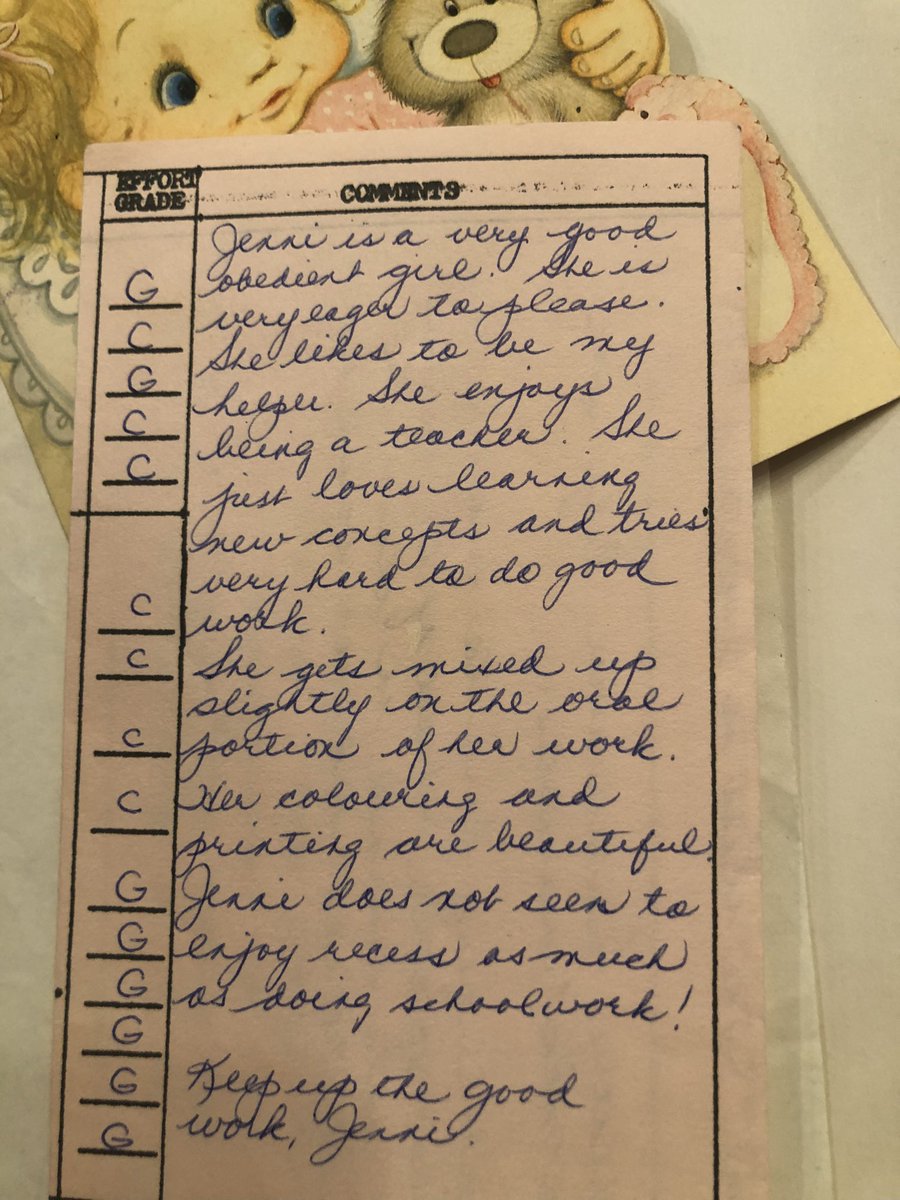 EFFORT
GRADE
COMMENTS
G
C
G
C
C
C
C
C
C
G
G
G
G
G
G
Jenni is a very good
obedient girl. She is
very eager to please.
She likes to be my
helper. She enjoys
being a teacher. She
just loves learning
new concepts and tries
very hard to do good
work.
She gets mixed up
slightly on the oral
portion of her work.
Her colouring and
printing are beautiful.
Jenni does not seem to
enjoy recess as much
as doing schoolwork!
Keep up the good
work, Jenni.